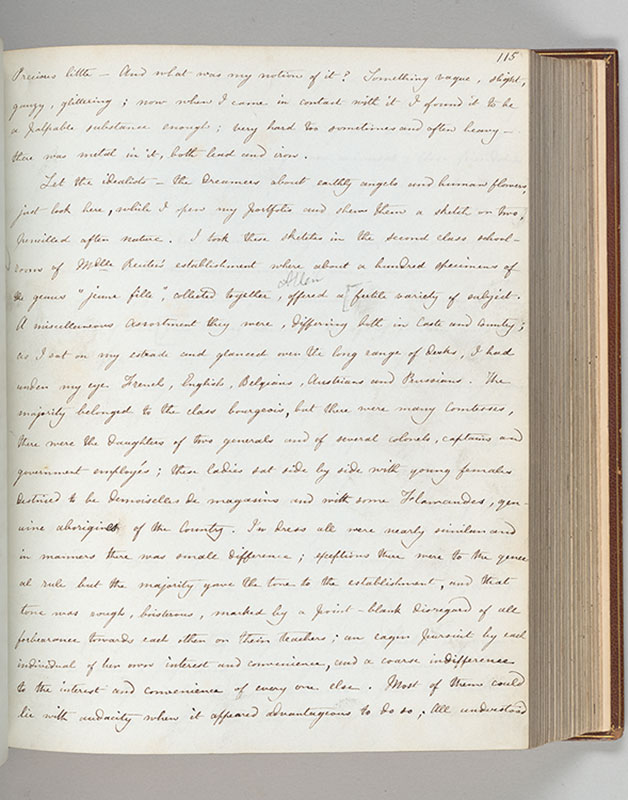 115
Precious little — And what was my notion of it? Something vague, slight,
gauzy, glittering; now when I came in contact with it I found it to be
a palpable substance enough; very hard too sometimes and often heavy —
there was metal in it, both lead and iron.
Let the idealists — the dreamers about earthly angels and human flowers,
just look here, while I open my portfolio and shew them a sketch or two,
pencilled after nature. I took these sketches in the second class school-
room of Mdlle Reuter's establishment where about a hundred specimens of
Allen
the genus "jeune fille", collected together, offered a [fertile variety of subject.
A miscellaneous assortment they were, differing both in caste and country;
as I sat on my estrade and glanced over the long range of desks, I had
under my eye French, English, Belgians, Austrians and Prussians. The
majority belonged to the class bourgeois, but there were many Comtesses,
there were the daughters of two generals and of several colonels, captains and
government employés; these ladies sat side by side with young females
destined to be demoiselles de magasins and with some Flamandes, gen-
uine aborigines of the country. In dress all were nearly similar and
in manners there was small difference; exceptions there were to the gener
al rule but the majority gave the tone to the establishment, and that
tone was rough, boisterous, marked by a point-blank disregard of all
forbearance towards each other or their teachers; an eager pursuit by each
individual of her own interest and convenience, and a coarse indifference
to the interest and convenience of every one else. Most of them could
lie with audacity when it appeared advantageous to do so; All understood